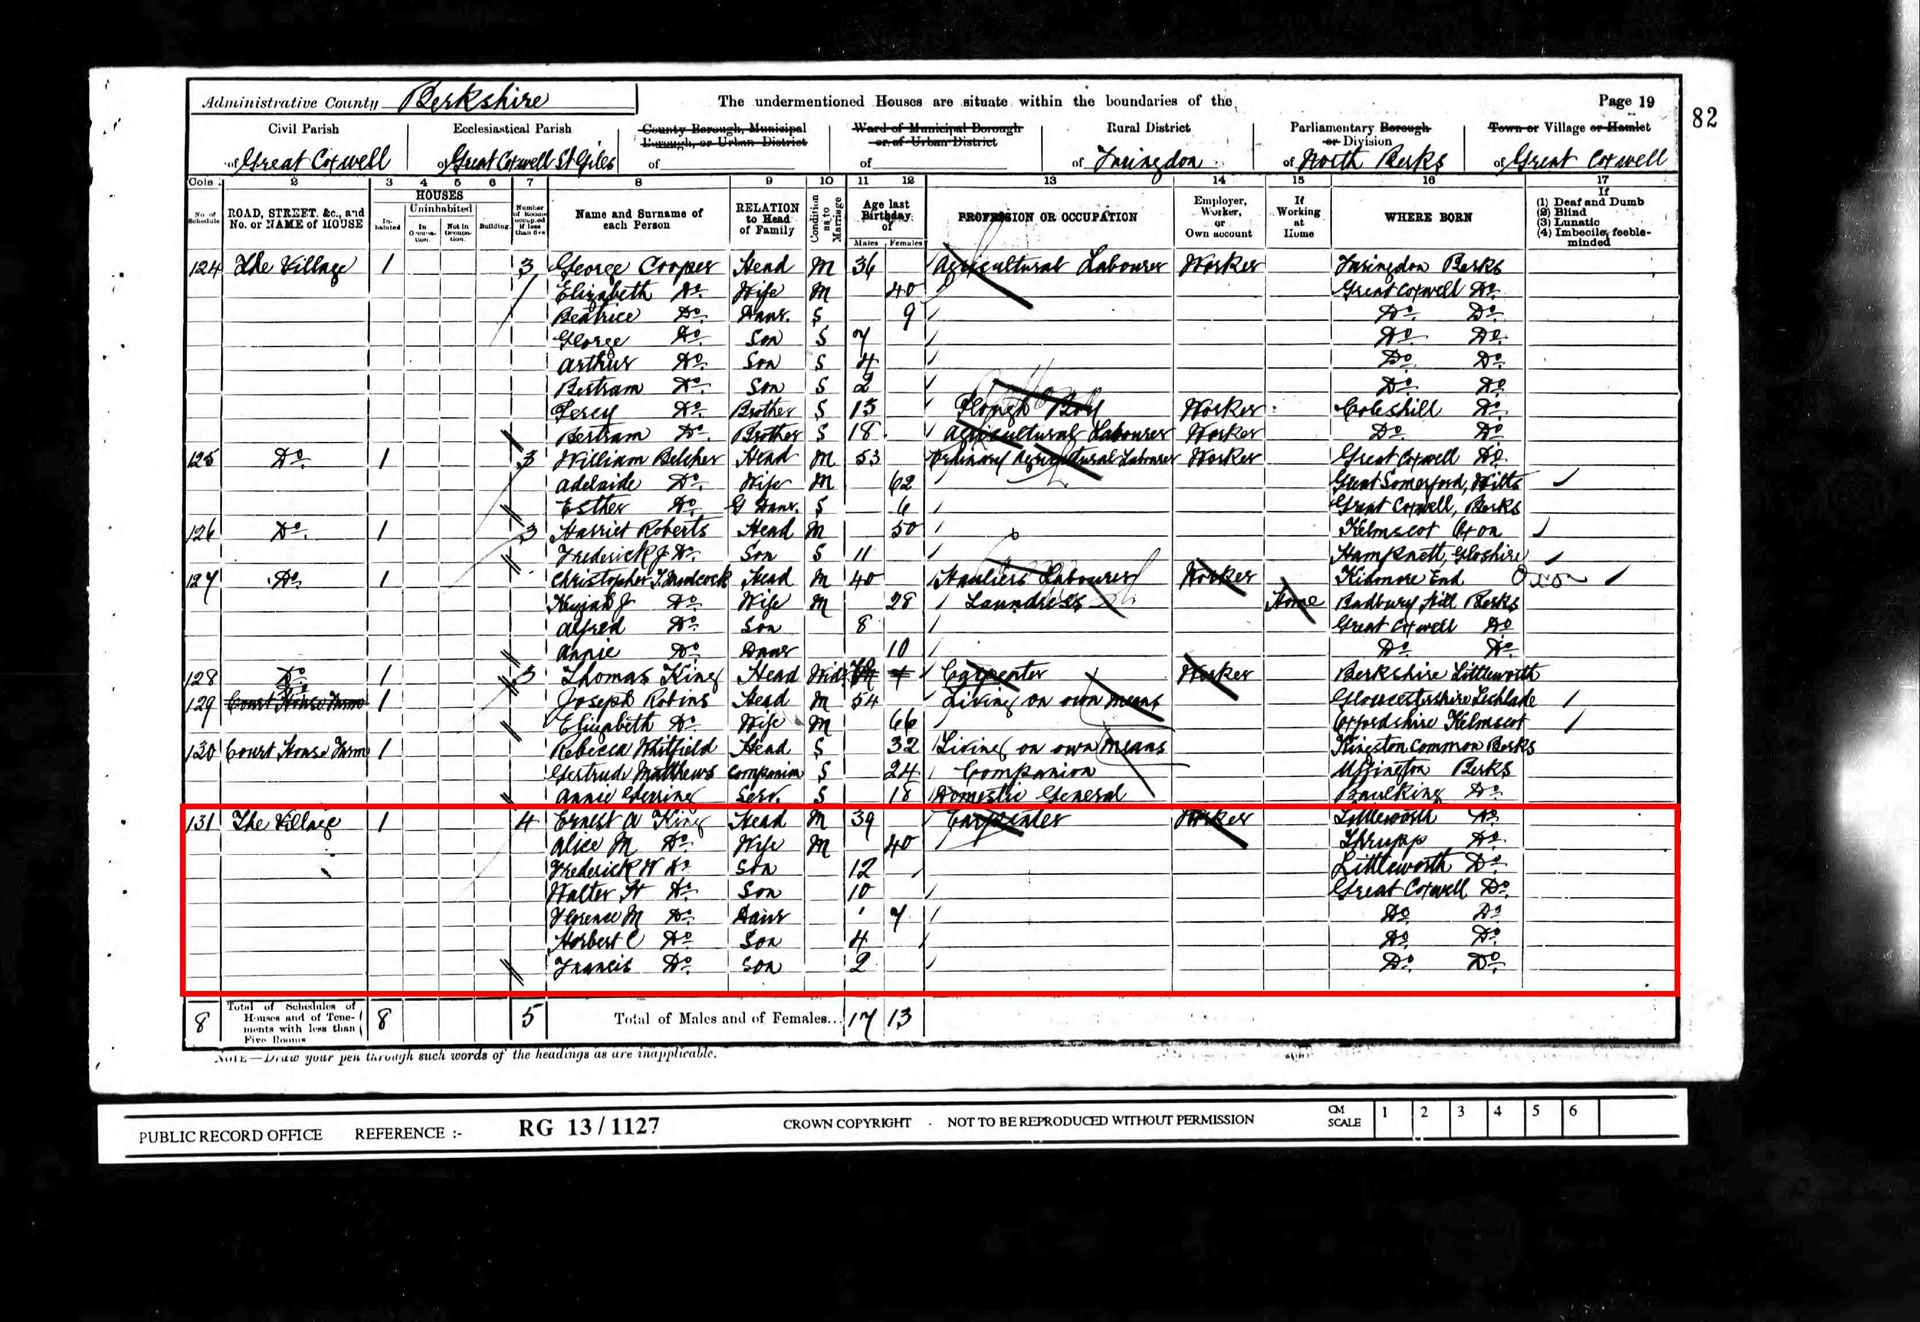 Administrative County Berkshire The undermentioned Houses are situate within the boundaries of the Page 19
82
Civil Parish Ecclesiastical Parish County Borough, Municipal Borough, or Urban District Ward of Municipal Borough or of Urban District Rural District Parliamentary Borough or Division Town or Village or Hamlet
of Great Coxwell of Great Coxwell St Giles of of of Faringdon of North Berks of Great Coxwell
Cols 2 3 4 5 6 7 8 9 10 11 12 13 14 15 16 17
No. of Schedule ROAD, STREET, &c., and No. or NAME of HOUSE HOUSES In-habited Uninhabited In Occupa-tion. Not in Occupa-tion. Building. Number of Rooms occupied if less than five Name and Surname of each Person RELATION to Head of Family Condition as to Marriage Age last Birthday of Males Females PROFESSION OR OCCUPATION Employer, Worker, or Own account If Working at Home WHERE BORN If (1) Deaf and Dumb (2) Blind (3) Lunatic (4) Imbecile, feeble-minded
124 The Village 1 3 George Cooper Head M 36 Agricultural Labourer Worker Faringdon Berks
Elizabeth Do Wife M 40 Great Coxwell Do
Beatrice Do Daur. S 9 Do Do
George Do Son S 7 Do Do
Arthur Do Son S 4 Do Do
Bertram Do Son S 2 Do Do
Percy Do Brother S 13 Plough Boy Worker Coleshill Do
Bertram Do Brother S 18 Agricultural Labourer Worker Do Do
125 Do 1 3 William Belcher Head M 53 Ordinary Agricultural Labourer Worker Great Coxwell Do
Adelaide Do Wife M 62 Great Somerford, Wilts
Esther Do G Daur. S 6 Great Coxwell, Berks
126 Do 1 3 Harriet Roberts Head M 50 Kelmscot Oxon
Frederick J Do Son S 11 Hampnett, Gloshire
127 Do 1 Christopher Head M 40 Hauliers Labourer Worker Kidmore End Oxon
Keziah J Do Wife M 28 Laundress Home Badbury Hill Berks
Alfred Do Son 8 Great Coxwell Do
Annie Do Daur 10 Do Do
128 Do 1 3 Thomas King Head Wid Carpenter Worker Berkshire Littleworth
129 Court House Farm 1 Joseph Robins Head M 54 Living on own means Gloucestershire Lechlade
Elizabeth Do Wife M 66 Oxfordshire Kelmscot
130 Court House Farm 1 Rebecca Whitfield Head S 32 Living on own Means Kingston Common Berks
Gertrude Matthews Companion S 24 Companion Uffington Berks
Annie Serv. S 18 Domestic General Baulking Do
131 The Village 1 4 Ernest W King Head M 39 Carpenter Worker Littleworth Do
Alice M Do Wife M 40 Thrupp Do
Frederick W Do Son 12 Littleworth Do
Walter H Do Son 10 Great Coxwell Do
Florence M Do Daur 7 Do Do
Herbert C Do Son 4 Do Do
Francis Do Son 2 Do Do
8 Total of Schedules of Houses and of Tene-ments with less than Five Rooms 8 5 Total of Males and of Females... 17 13
NOTE—Draw your pen through such words of the headings as are inapplicable.
PUBLIC RECORD OFFICE REFERENCE :- RG 13/1127 CROWN COPYRIGHT - NOT TO BE REPRODUCED WITHOUT PERMISSION CM SCALE 1 2 3 4 5 6